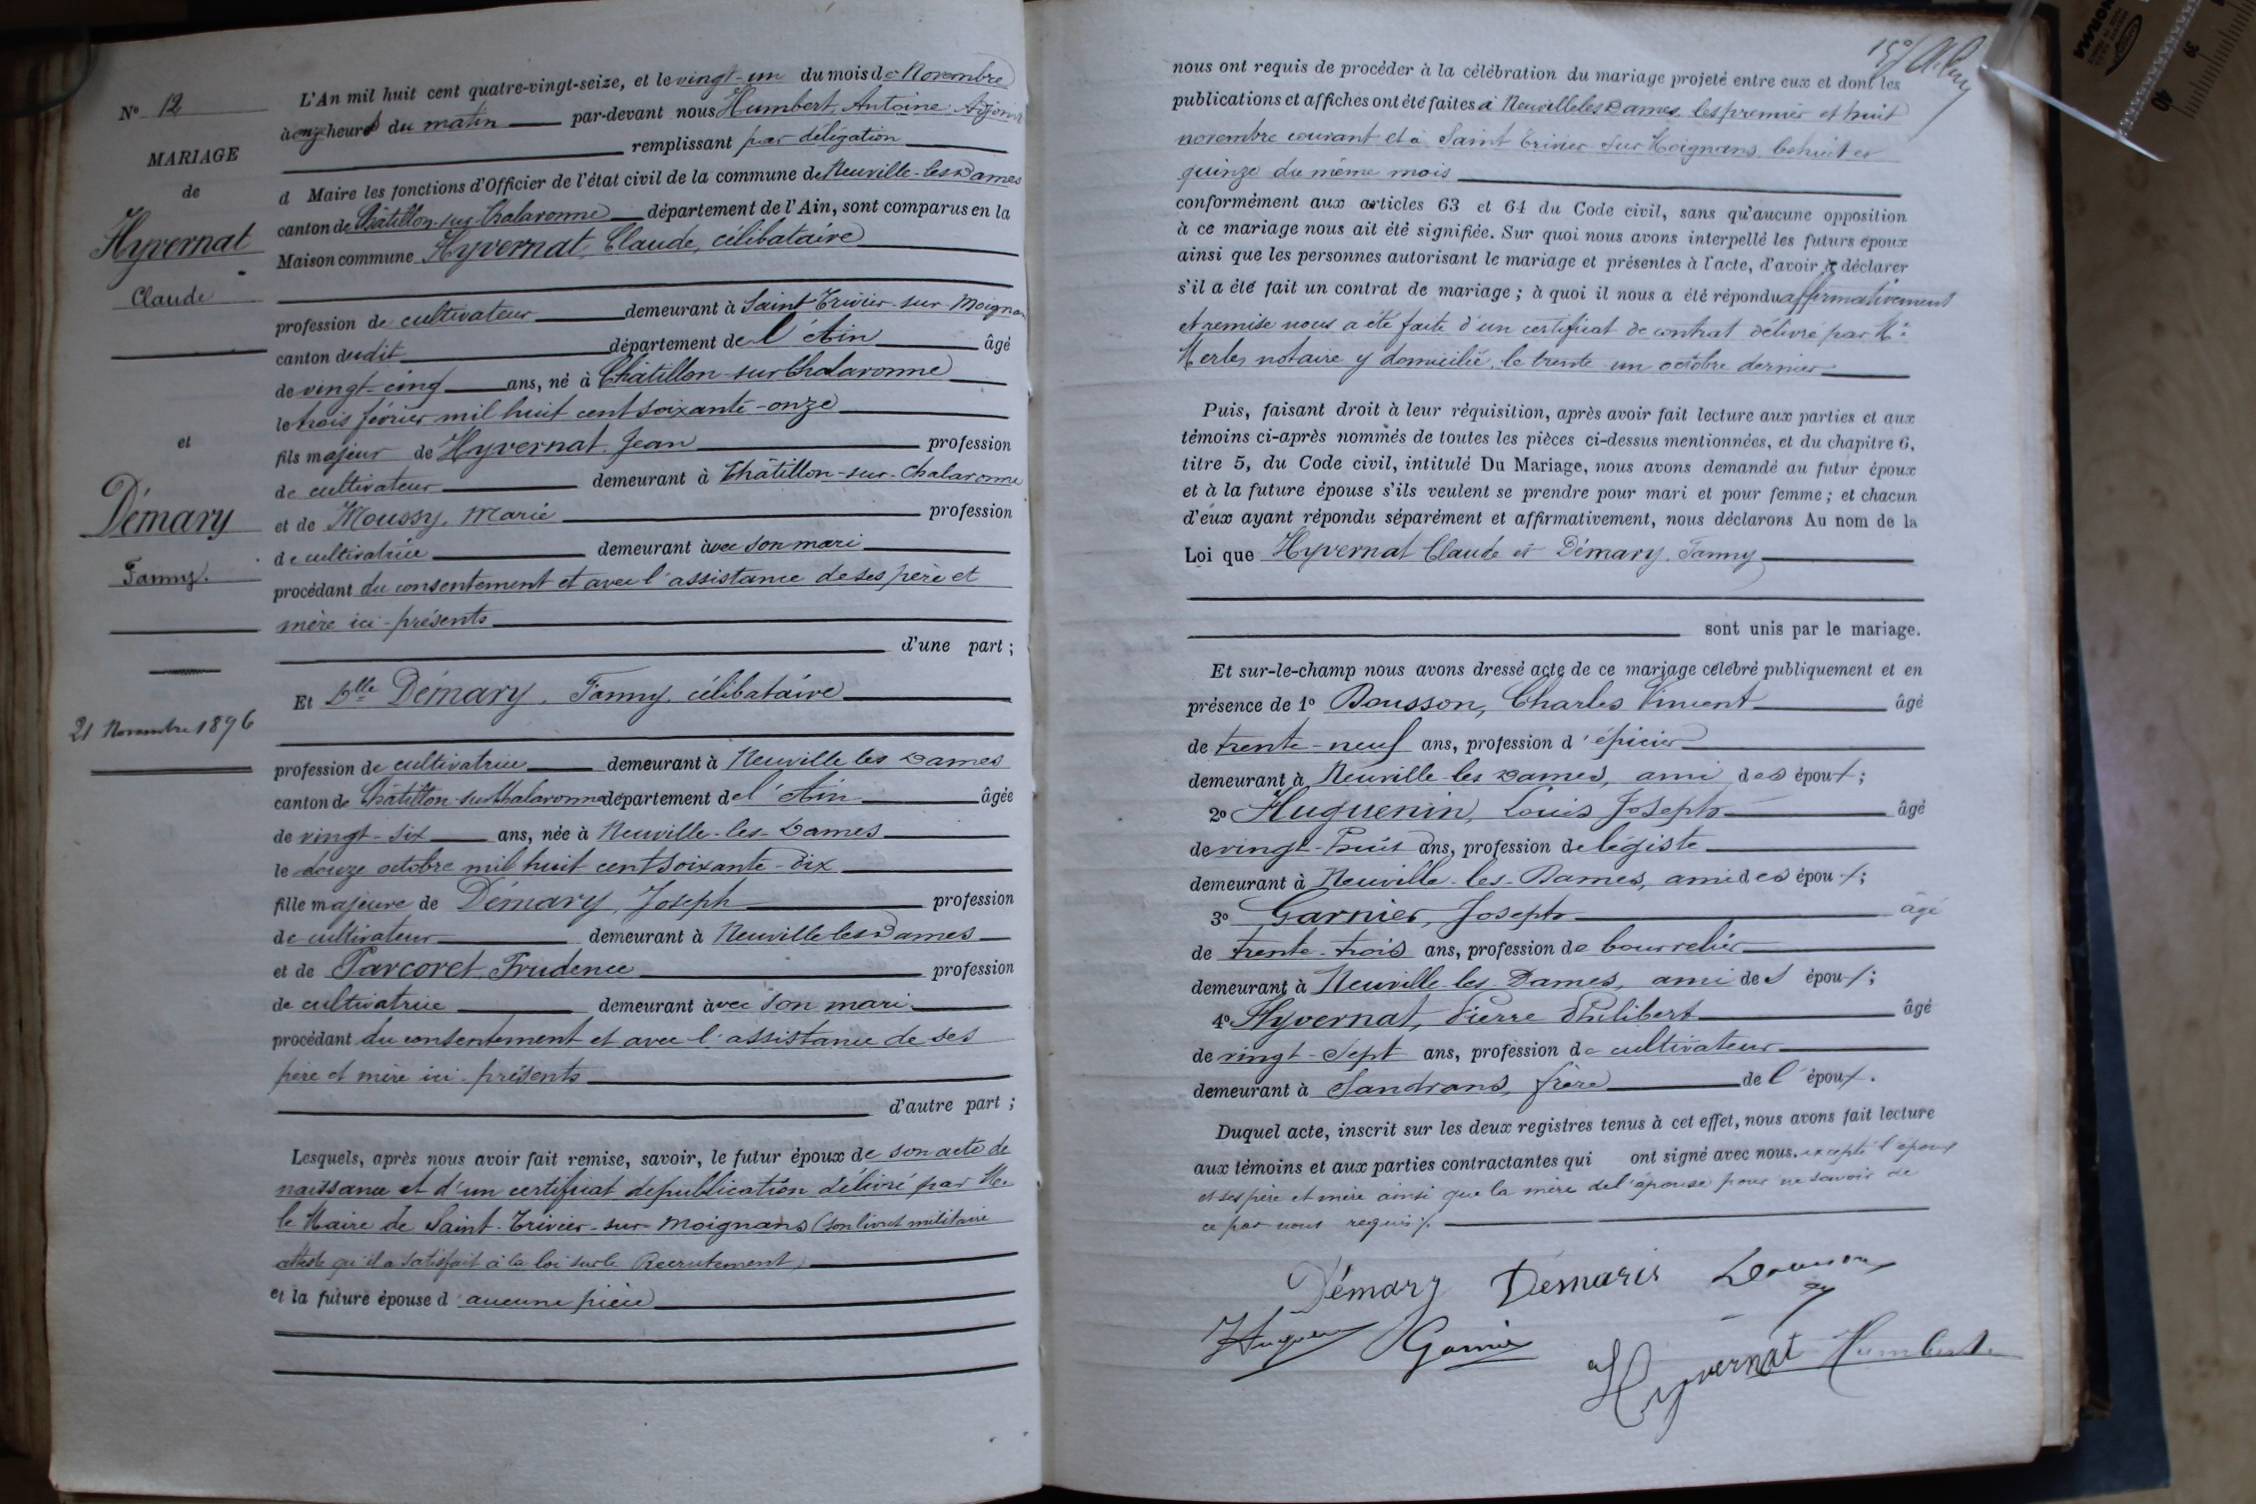 N° 12
MARIAGE
de
Hyvernat
Claude
et
Démary
Fanny.
21 Novembre 1896
L'An mil huit cent quatre-vingt-seize, et le vingt-un du mois de Novembre
à onze heures du matin par-devant nous Humbert, Antoine Adjoint
remplissant par délégation
d Maire les fonctions d'Officier de l'état civil de la commune de Neuville-les-Dames
canton de Châtillon-sur-Chalaronne département de l'Ain, sont comparus en la
Maison commune Hyvernat, Claude, célibataire
profession de cultivateur demeurant à Saint Trivier-sur-Moignans
canton dudit département de l'Ain âgé
de vingt-cinq ans, né à Châtillon-sur Chalaronne
le trois février mil huit cent soixante-onze
fils majeur de Hyvernat, Jean profession
de cultivateur demeurant à Châtillon-sur-Chalaronne
et de Moussy, Marie profession
de cultivatrice demeurant avec son mari
procédant du consentement et avec l'assistance de ses père et
mère ici-présents
d'une part ;
Et Dlle Démary, Fanny, célibataire
profession de cultivatrice demeurant à Neuville les Dames
canton de Châtillon-sur Chalaronne département de l'Ain âgée
de vingt-six ans, née à Neuville-les-Dames
le douze octobre mil huit cent soixante-dix
fille majeure de Démary, Joseph profession
de cultivateur demeurant à Neuville les Dames
et de Parcoret, Prudence profession
de cultivatrice demeurant avec son mari
procédant du consentement et avec l'assistance de ses
père et mère ici-présents
d'autre part ;
Lesquels, après nous avoir fait remise, savoir, le futur époux de son acte de
naissance et d'un certificat de publication délivré par Mr
le Maire de Saint-Trivier-sur-Moignans (son livret militaire
atteste qu'il a satisfait à la loi sur le Recrutement)
et la future épouse d'aucune pièce
nous ont requis de procéder à la célébration du mariage projeté entre eux et dont les
publications et affiches ont été faites à Neuville les Dames, les premier et huit
novembre courant et à Saint Trivier sur Moignans, le huit et
quinze du même mois
conformément aux articles 63 et 64 du Code civil, sans qu'aucune opposition
à ce mariage nous ait été signifiée. Sur quoi nous avons interpellé les futurs époux
ainsi que les personnes autorisant le mariage et présentes à l'acte, d'avoir à déclarer
s'il a été fait un contrat de mariage ; à quoi il nous a été répondu affirmativement
et remise nous a été faite d'un certificat de contrat délivré par Me
Merle, notaire y domicilié, le trente-un octobre dernier
Puis, faisant droit à leur réquisition, après avoir fait lecture aux parties et aux
témoins ci-après nommés de toutes les pièces ci-dessus mentionnées, et du chapitre 6,
titre 5, du Code civil, intitulé Du Mariage, nous avons demandé au futur époux
et à la future épouse s'ils veulent se prendre pour mari et pour femme ; et chacun
d'eux ayant répondu séparément et affirmativement, nous déclarons Au nom de la
Loi que Hyvernat Claude et Démary, Fanny
sont unis par le mariage.
Et sur-le-champ nous avons dressé acte de ce mariage célébré publiquement et en
présence de 1° Bousson, Charles Vincent âgé
de trente-neuf ans, profession d'épicier
demeurant à Neuville-les Dames, ami des époux ;
2° Huguenin, Louis Joseph âgé
de vingt-huit ans, profession de légiste
demeurant à Neuville-les-Dames, ami des époux ;
3° Garnier, Joseph âgé
de trente-trois ans, profession de bourrelier
demeurant à Neuville-les-Dames, ami des époux ;
4° Hyvernat, Pierre Philibert âgé
de vingt-sept ans, profession de cultivateur
demeurant à Sandrans, frère de l'époux.
Duquel acte, inscrit sur les deux registres tenus à cet effet, nous avons fait lecture
aux témoins et aux parties contractantes qui ont signé avec nous, excepté l'époux
et ses père et mère ainsi que la mère de l'épouse pour ne savoir de
ce par nous requis.
Démary Démaris
Huguenin Garnier Hyvernat Humbert